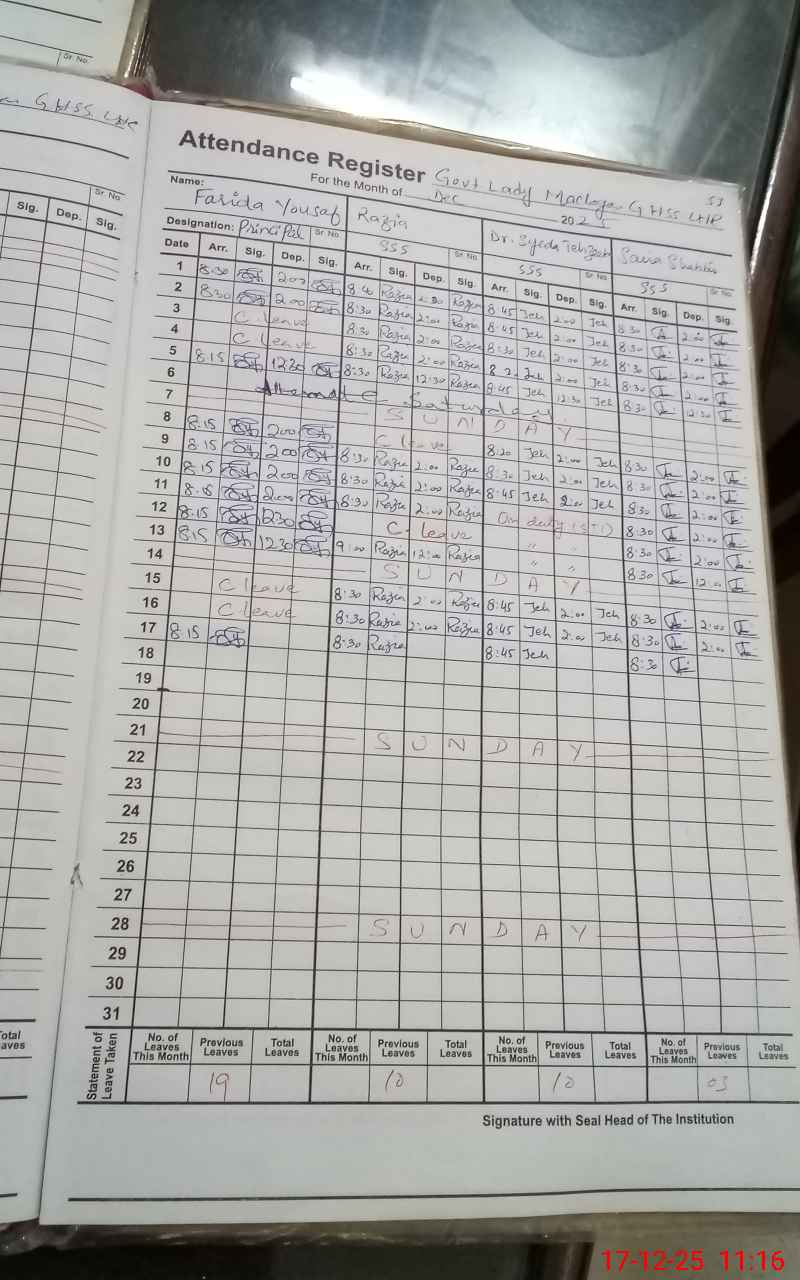 Sr. No.
GHSS. LHR
Sr. No
Sig. Dep. Sig.
53
Attendance Register Govt Lady GHSS LHR
For the Month of Dec 2025
Name: Farida Yousaf Razia Dr. Syeda
Designation: Principal Sr No. SSS Sr No. SSS Sr No SSS Sr No.
Date Arr. Sig. Dep. Sig. Arr. Sig. Dep. Sig. Arr. Sig. Dep. Sig. Arr. Sig. Dep. Sig.
1 8:30 200 Razia Razia 8:45 Jeh 2:00 Jeh 8:30 2:00
2 830 200 8:30 Razia 2:00 Razia 8:45 Jeh 2:00 Jeh 8:30 2:00
3 C. leave 8:30 Razia 2:00 Razia 8:30 Jeh 2:00 Jeh 8:30 2:00
4 C. leave 8:30 Razia 2:00 Razia 2:00 Jeh 8:30 2:00
5 8.15 1230 8:30 Razia 12:30 Razia 8:45 Jeh 12:30 Jeh 8:30 12:30
6 Saturday
7 S U N D A Y
8 8.15 200 C leave 8:20 Jeh 2:00 Jeh 8:30 2:00
9 8.15 200 8:30 Razia 2:00 Razia 8:30 Jeh 2:00 Jeh 8:30 2:00
10 8.15 200 8:30 Razia 2:00 Razia 8:45 Jeh 2:00 Jeh 8:30 2:00
11 8.15 200 8:30 Razia 2:00 Razia On duty 8:30 2:00
12 8.15 1230 C-leave " " 8:30 2:00
13 8.15 1230 9:00 Razia 12:00 Razia " " 8:30 12:00
14 S U N D A Y
15 C leave 8:30 Razia 2:00 Razia 8:45 Jeh 2:00 Jeh 8:30 2:00
16 C leave 8:30 Razia 2:00 Razia 8:45 Jeh 2:00 Jeh 8:30 2:00
17 8.15 8:30 Razia 8:45 Jeh 8:30
18
19
20
21 S U N D A Y
22
23
24
25
26
27
28 S U N D A Y
29
30
31
Total Leaves
Statement of Leave Taken No. of Leaves This Month Previous Leaves Total Leaves No. of Leaves This Month Previous Leaves Total Leaves No. of Leaves This Month Previous Leaves Total Leaves No. of Leaves This Month Previous Leaves Total Leaves
19 10 10 03
Signature with Seal Head of The Institution
17-12-25 11:16